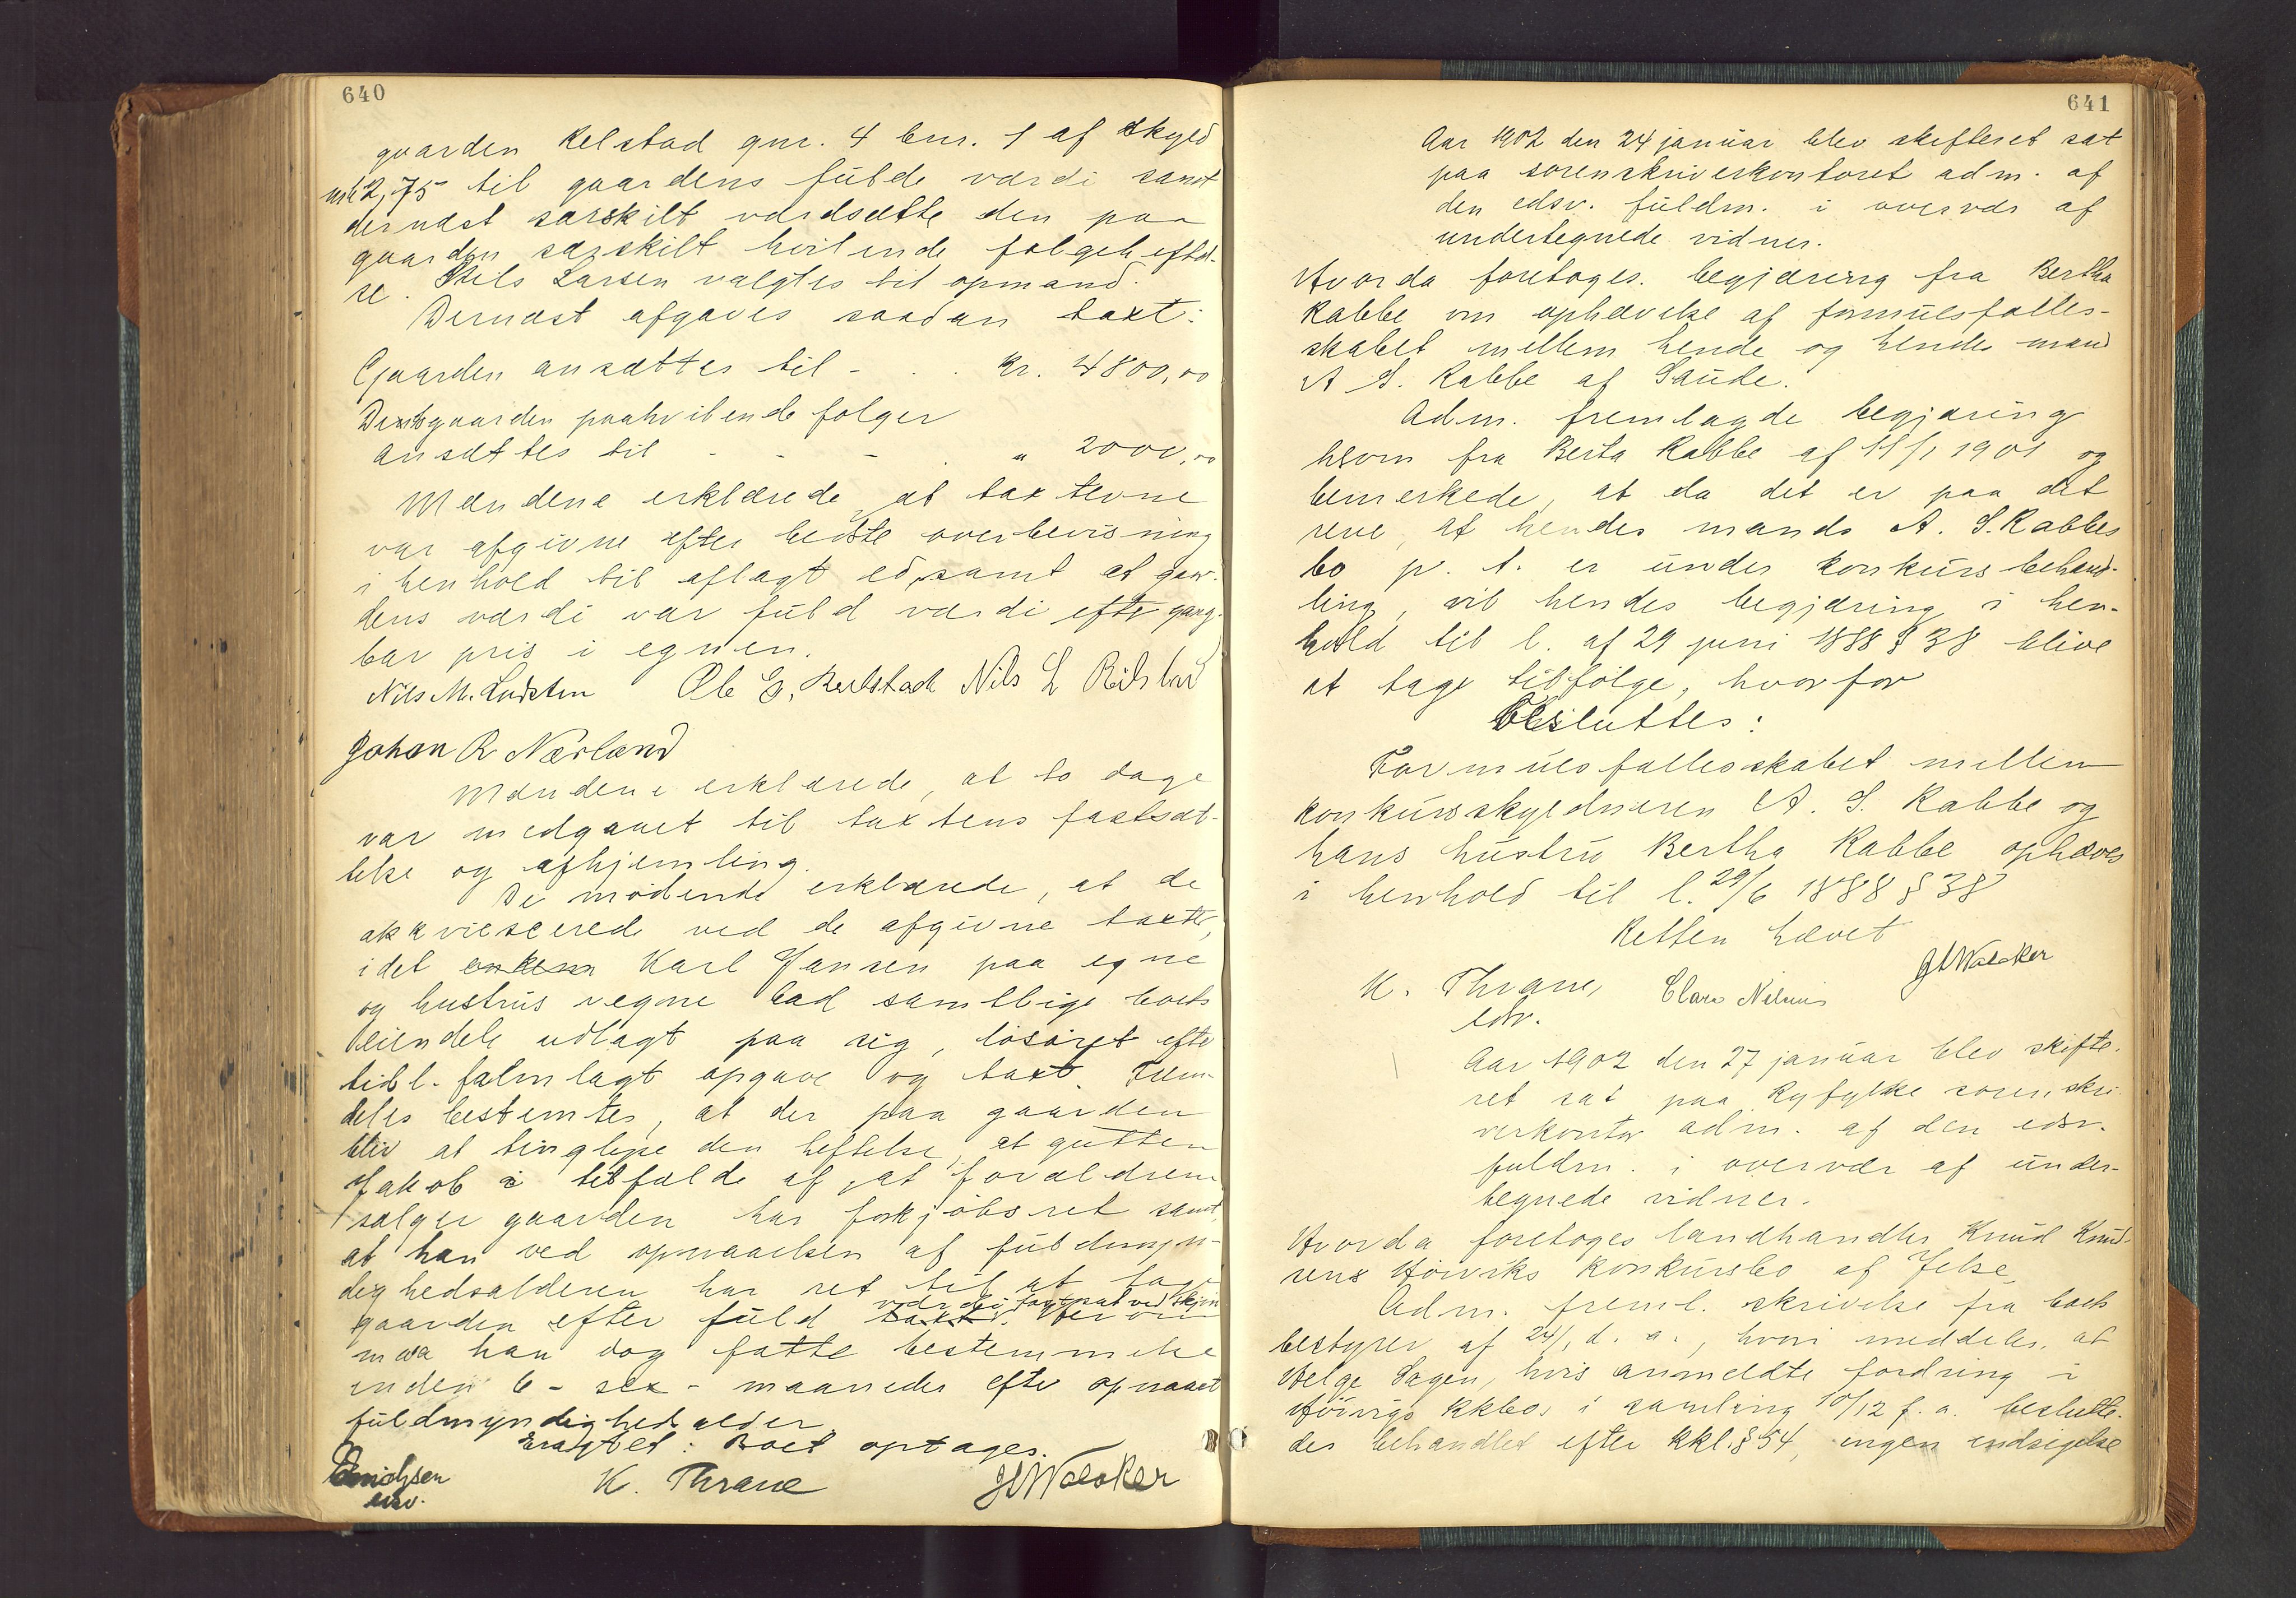 640
gaarden Relstad gnr. 4 bnr. 1 af skyld
mk 2,75 til gaardens fulde værdi samt
dernæst særskilt værdsætte den paa
gaarden særskilt hvilende folgeheftel-
se. Nils Larsen valgtes til opmand.
Dernæst afgaves saadan taxt:
Gaarden ansættes til - . . kr. 4800,00
De gaarden paahvilende folger
ansættes til - - - . " 2000,00
Mændene erklærede, at taxterne
var afgivne efter bedste overbevisning
i henhold til aflagt ed, samt at gaar-
dens værdi var fuld værdi efter gang-
bar pris i egnen.
Nils M. Ole G. Relstad Nils L
Johan R Nærland
Mændene erklærede, at to dage
var medgaaet til taxtens fastsæt-
telse og afhjemling.
De mödende erklærede, at de
akkviescerede ved de afgivne taxter,
idet enken Karl Hansen paa egne
og hustrus vegne bad samtlige boets
eiendele udlagt paa sig, lösöret efter
tidl. fremlagt opgave og taxt. Frem-
deles bestemtes, at der paa gaarden
blir at tinglyse den heftelse, at gutten
Jakob i tilfælde af, at forældrene
sælger gaarden har forkjöbsret samt
at han ved opnaaelsen af fuldmyn-
dighedsalderen har ret til at tage
værdi fastsat ved skjön
gaarden efter fuld taxt. Herom
maa han dog fatte bestemmelse
inden 6 - sex - maaneder efter opnaaet
fuldmyndighedsalder.
Eragtet: Boet optages.
edsv.
K. Thrane

641
Aar 1902 den 24 januar blev skifteret sat
paa sorenskriverkontoret adm. af
den edsv. fuldm. i overvær af
undertegnede vidner.
Hvorda foretoges. begjæring fra Bertha
Rabbe om ophævelse af formuesfælles-
skabet mellem hende og hendes mand
A S. Rabbe af Saude.
Adm. fremlagde begjæring
herom fra Berta Rabbe af 11/1 1901 og
bemerkede, at da det er paa det
rene, at hendes mands A. S. Rabbes
bo p. t. er under konkursbehand-
ling, vil hendes begjæring i hen-
hold til l. af 29 juni 1888 § 38 blive
at tage tilfölge, hvorfor
Besluttes:
Formuesfællesskabet mellem
konkursskyldneren A. S. Rabbe og
hans hustru Bertha Rabbe ophæves
i henhold til l. 29/6 1888 § 38
Retten hævet
K. Thrane, Clara
edsv.
Aar 1902 den 27 januar blev skifte-
ret sat paa Ryfylke sorenskri-
verkontor adm. af den edsv.
fuldm. i overvær af under-
tegnede vidner.
Hvorda foretoges landhandler Knud Knud-
sens Höiviks konkursbo af Jelse
Adm. freml. skrivelse fra boets
bestyrer af 24/1 d. a., hvori meddeles, at
Helge Sagen, hvis anmeldte fordring i
Höivigs kkbo. i samling 10/12 f. a. beslutte-
des behandlet efter kkl. § 54, ingen indsigelse